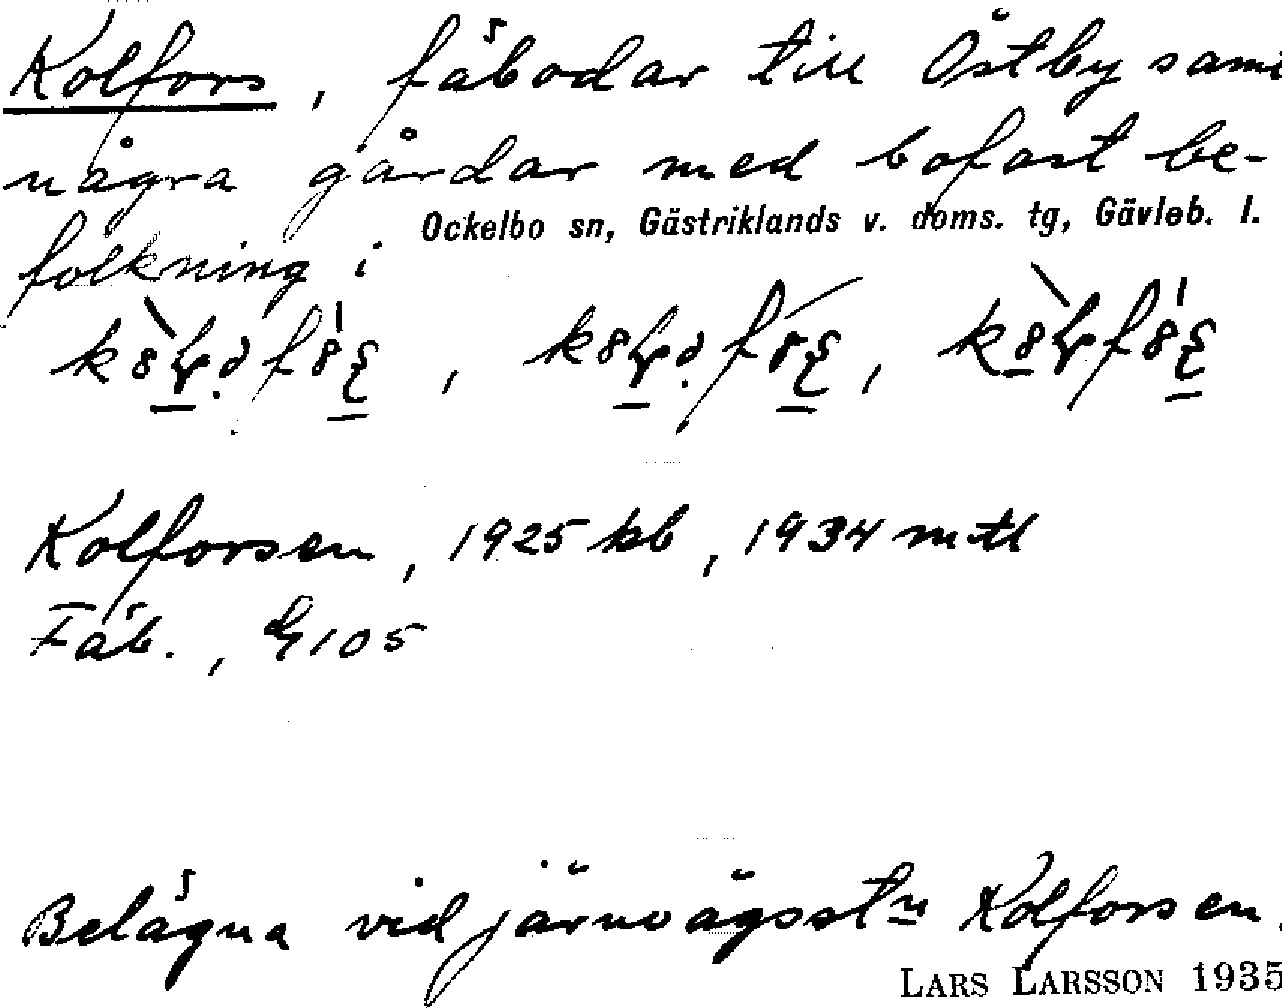 Kolfors, fäbodar till Östby samt
några gårdar med bofast be-
Ockelbo sn, Gästriklands v. doms. tg, Gävleb. l.
folkning i
Kolforsen, 1925 kb, 1934 mtl
Fäb., G105
Belägna vid järnvägsstn Kolforsen.
LARS LARSSON 1935